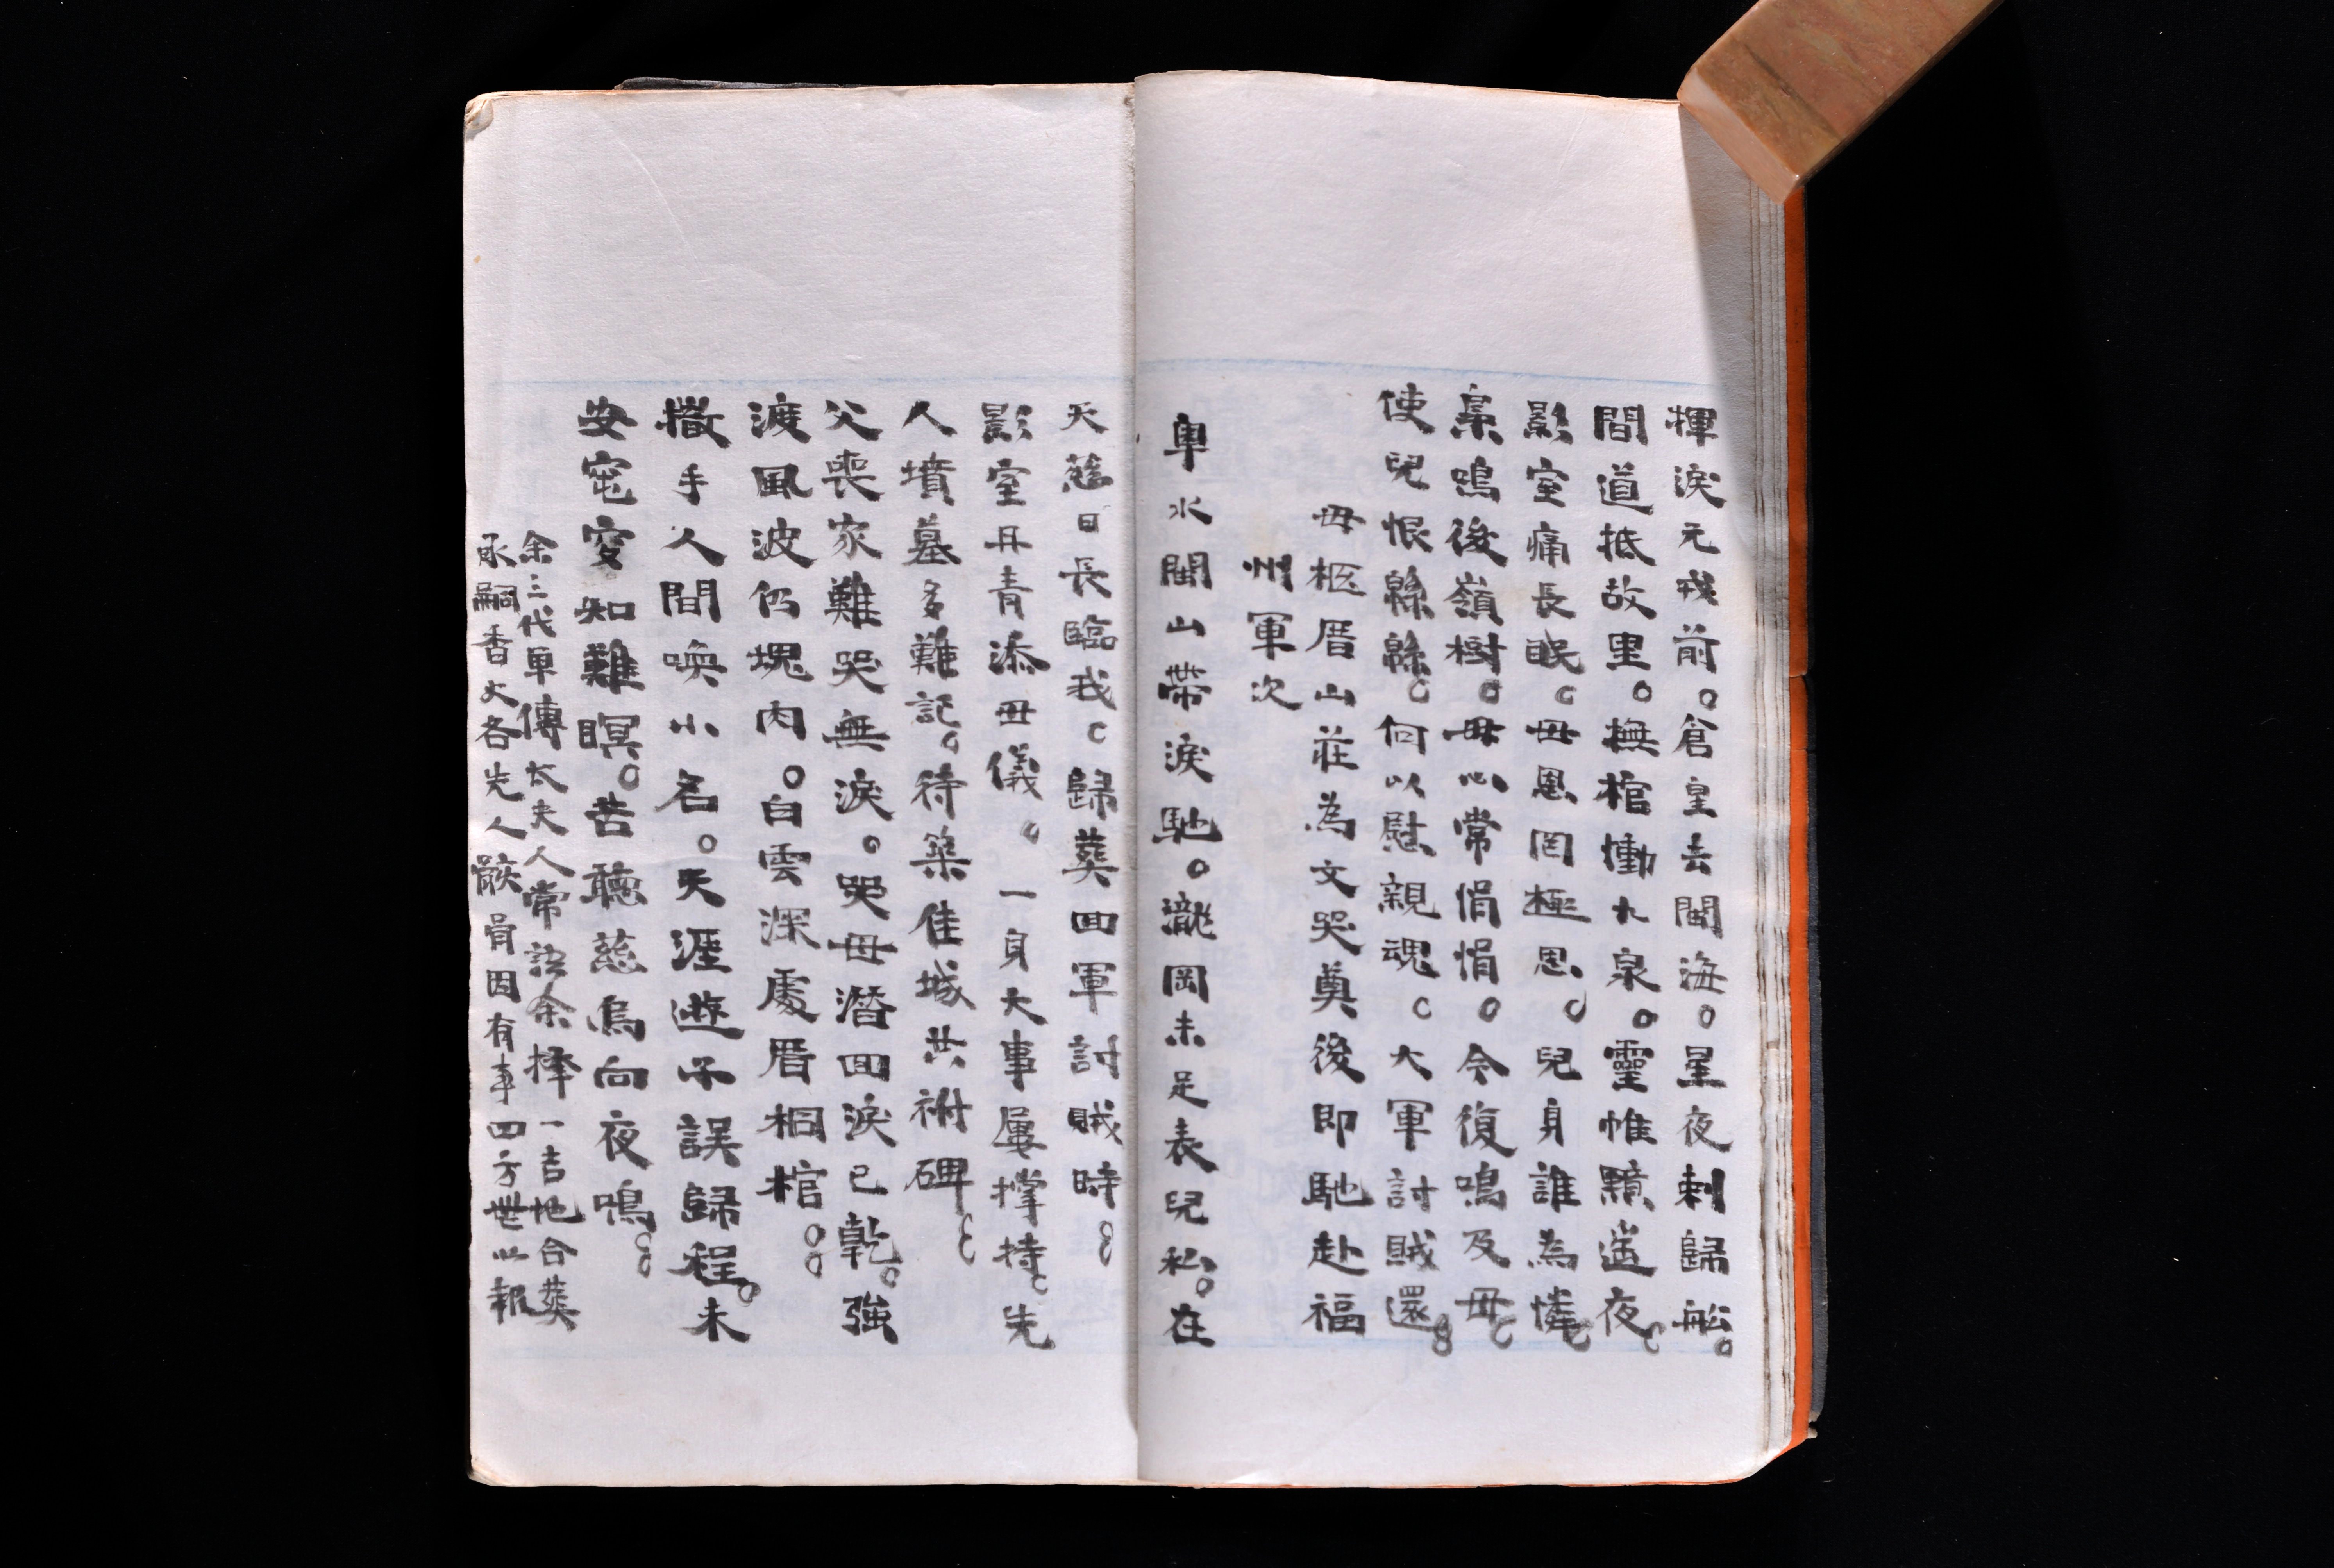 揮淚元戎前。倉皇去閩海。星夜刺歸船。
間道抵故里。撫棺慟九泉。靈帷黯遙夜。
影室痛長眠。母恩罔極恩。兒身誰為憐。
梟鳴後嶺樹。母心常悁悁。今復鳴及母。
使兒恨緜緜。何以慰親魂。大軍討賊還。
母柩厝山莊為文哭奠後即馳赴福
州軍次
卑水閩山帶淚馳。瀧岡未足表兒私。在
天慈日長臨我。歸葬回軍討賊時。
影室丹青添母儀。一身大事屢撐持。先
人墳墓多難記。待築佳城共祔碑。
父喪家難哭無淚。哭母潛回淚已乾。強
渡風波仍塊肉。白雲深處厝桐棺。
撒手人間喚小名。天涯遊子誤歸程。未
安窀穸知難瞑。苦聽慈烏向夜鳴。
余三代單傳太夫人常語余擇一吉地合葬
承嗣香火各先人骸骨因有事四方無以報